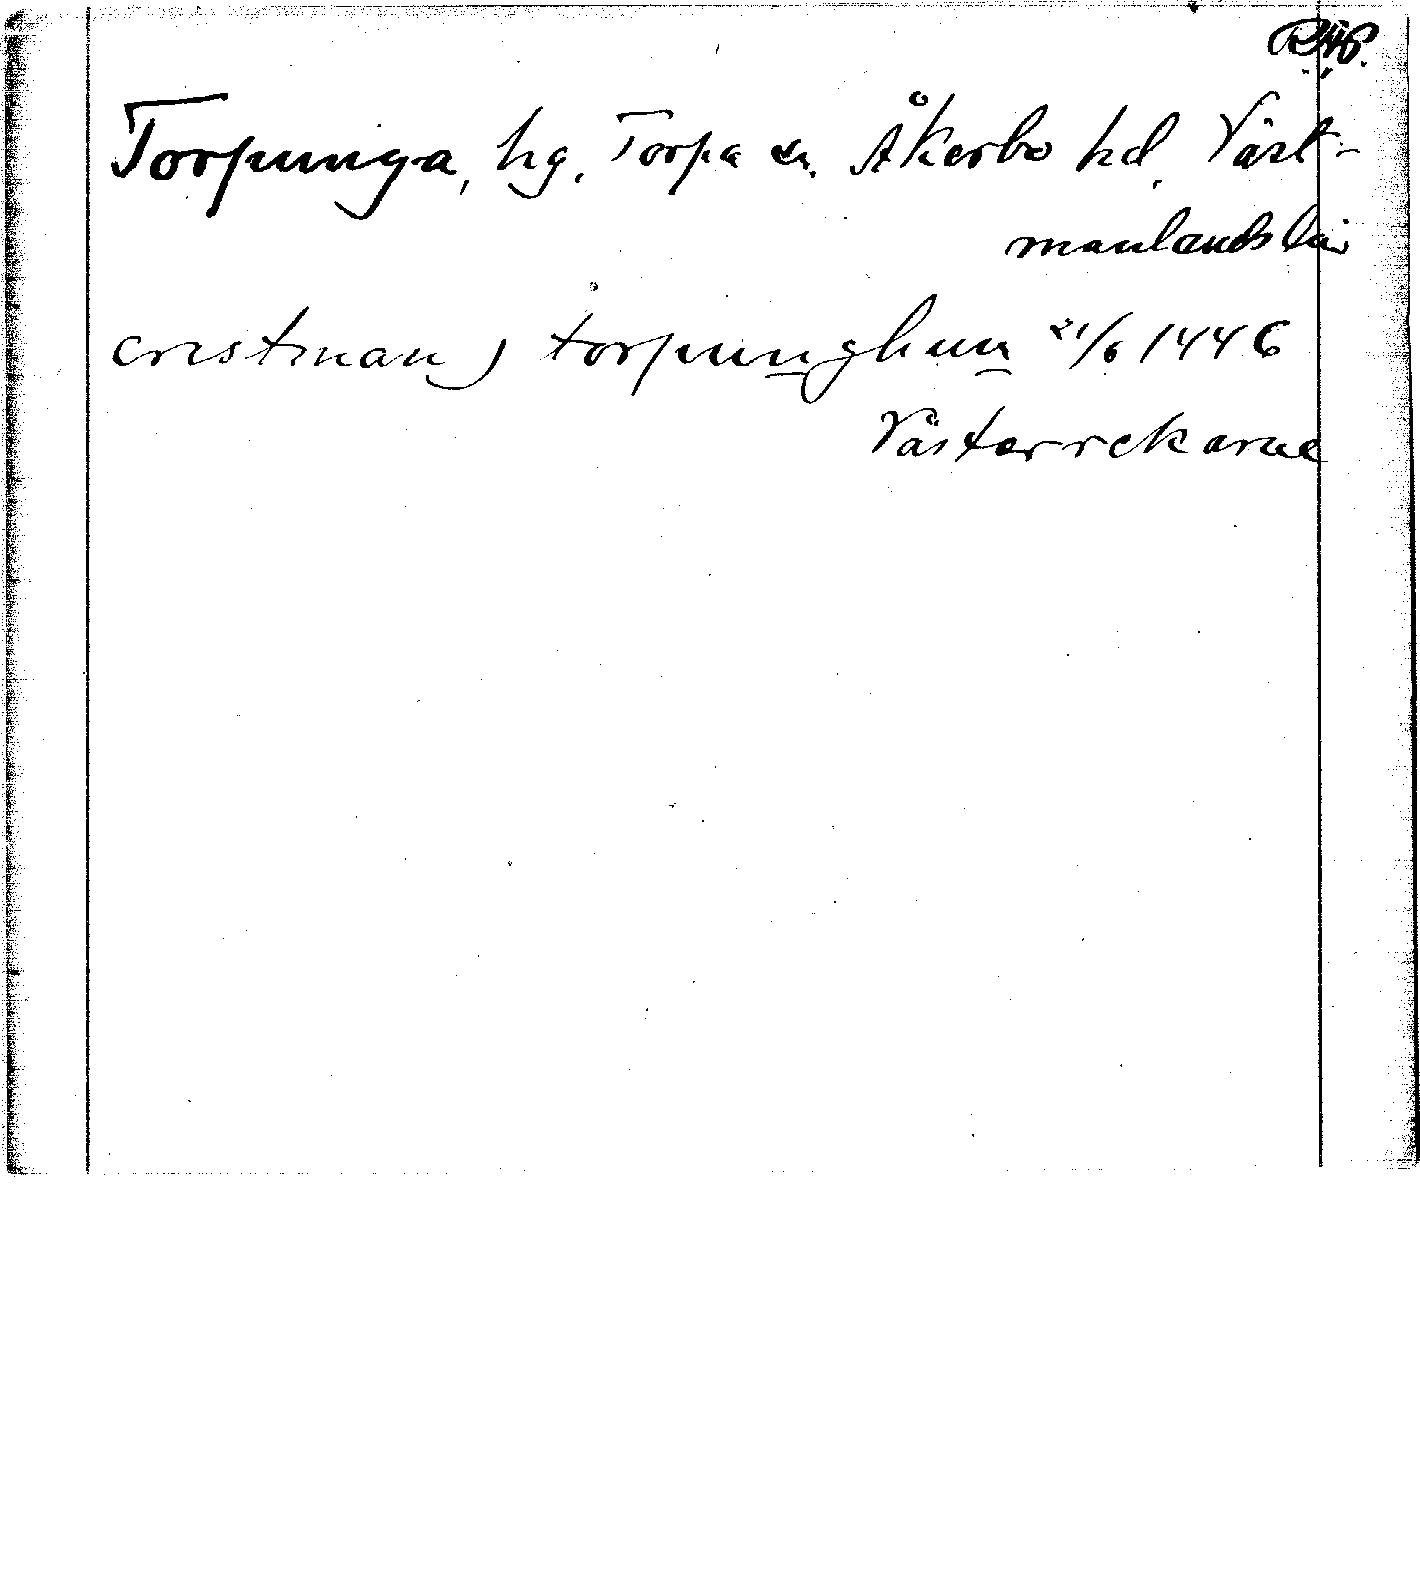 Torpunga, hg. Torpa sn. Åkerbo hd. Väst-
manlands län
cristman j torpunghum 21/6 1446
Västerrekarne